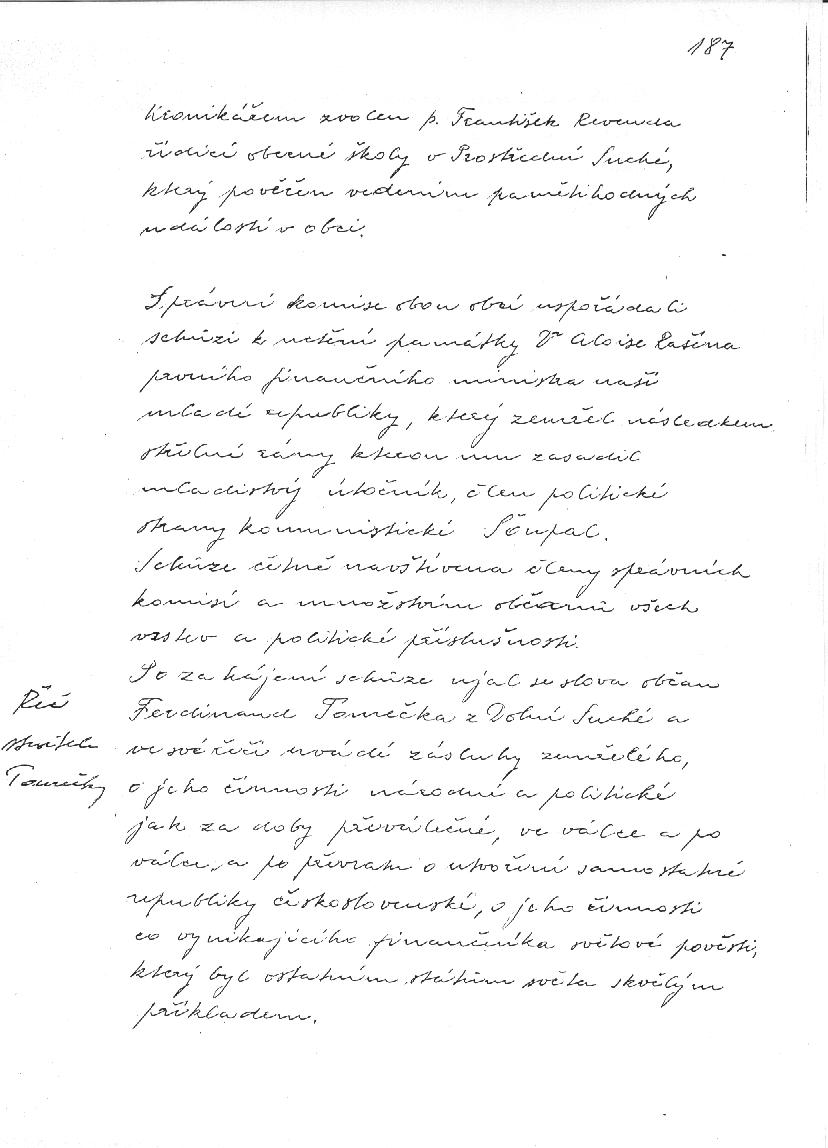 187
Kronikářem zvolen p. František Revenda
řídící obecné školy v Prostřední Suché,
který pověřen vedením pamětihodných
událostí v obci.
Správní komise obou obcí uspořádali
schůzi k uctění památky Dr Aloise Rašína
prvního finančního ministra naší
mladé republiky, který zemřel následkem
střelné rány kterou mu zasadil
mladistvý útočník, člen politické
strany komunistické Šoupal.
Schůze četně navštívena členy správních
komisí a množstvím občanů všech
vrstev a politické příslušnosti.
Po zahájení schůze ujal se slova občan
Ferdinand Tomečka z Dolní Suché a
ve své řeči uvádí zásluhy zemřelého,
o jeho činnosti národní a politické
jak za doby předválečné, ve válce a po
válce, a po převratu o utvoření samostatné
republiky československé, o jeho činnosti
co vynikajícího finančníka světové pověsti,
který byl ostatním státům světa skvělým
příkladem.
Řeč
Tomečky